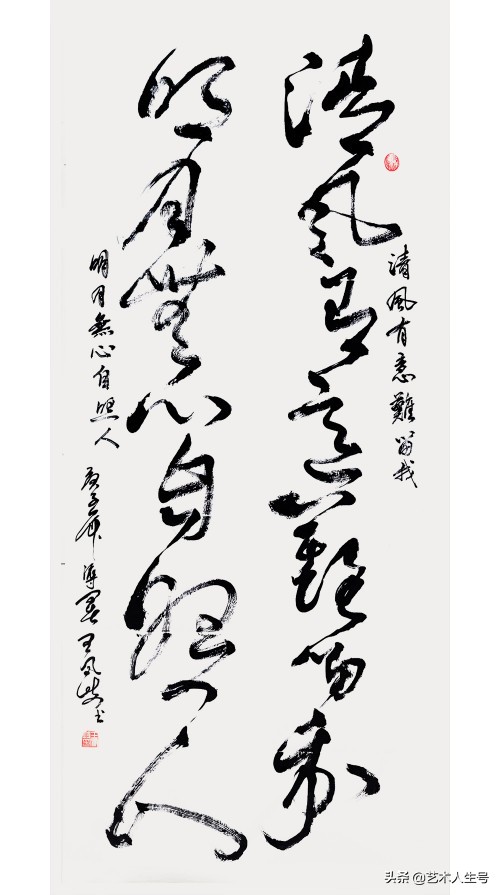 清風有意難留我
清風有意難留我
明月無心自照人
明月無心自照人
庚子年 王風 书
头条 @艺术人生号